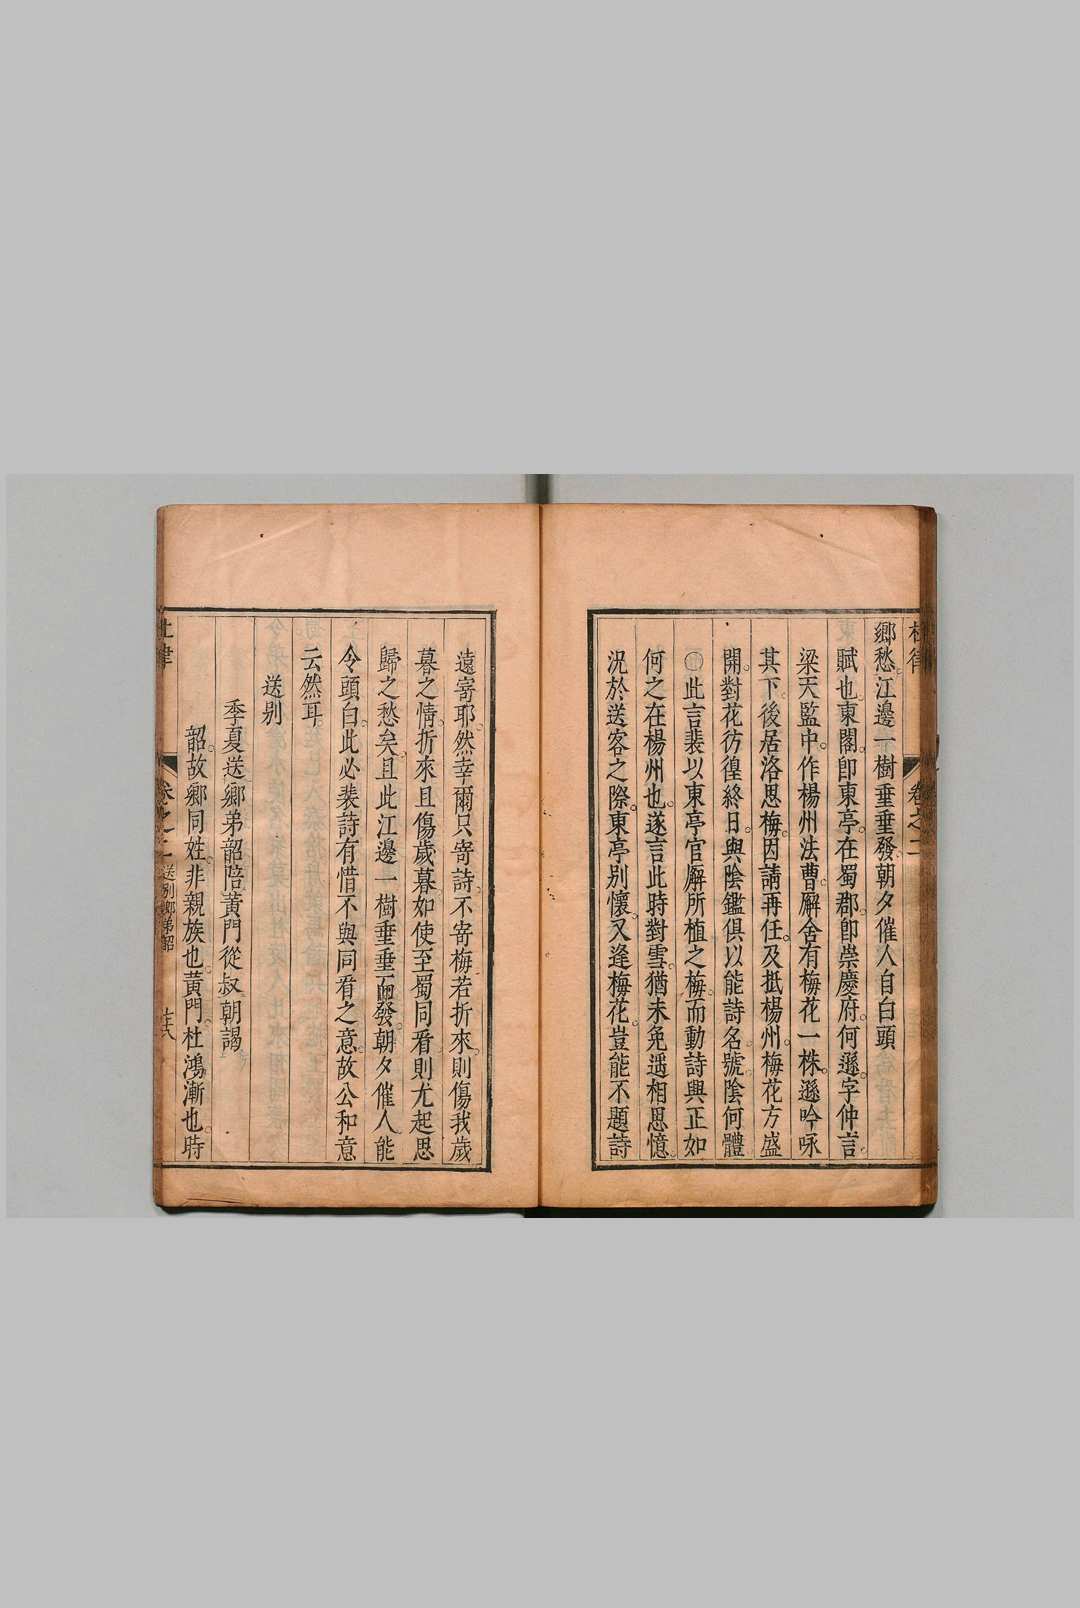 杜律
卷之二
鄉愁江邊一樹垂垂發朝夕催人自白頭
賦也東閣卽東亭在蜀郡卽崇慶府何遜字仲言
梁天監中作楊州法曹廨舍有梅花一株遜吟咏
其下後居洛思梅因請再任及抵楊州梅花方盛
開對花彷徨終日與陰鑑俱以能詩名號陰何體
〇此言裴以東亭官廨所植之梅而動詩興正如
何之在楊州也遂言此時對雪猶未免遥相思憶
況於送客之際東亭別懷又逢梅花豈能不題詩
遠寄耶然幸爾只寄詩不寄梅若折來則傷我歲
暮之情折來且傷歲暮如使至蜀同㸔則尤起思
歸之愁矣且此江邊一樹垂垂而發朝夕催人能
令頭白此必裴詩有惜不與同㸔之意故公和意
云然耳
送別
季夏送鄉弟韶陪黃門從叔朝謁
韶故鄉同姓非親族也黃門杜鴻漸也時
杜律
卷之二
送別鄉弟韶